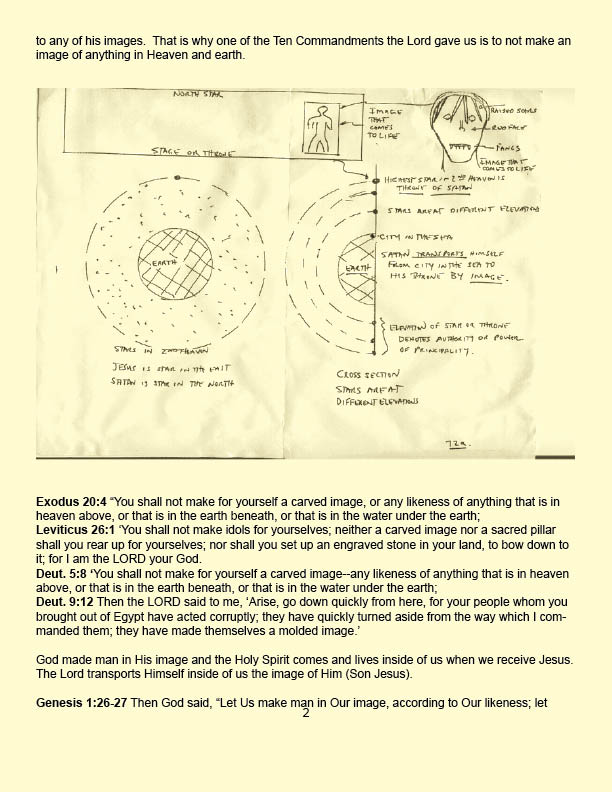 to any of his images.  That is why one of the Ten Commandments the Lord gave us is to not make an
image of anything in Heaven and earth.
NORTH STAR
STAGE OR THRONE
IMAGE
THAT
COMES
TO LIFE
RAISED SOULS
RED FACE
FANGS
IMAGE THAT
COMES TO LIFE
HIGHEST STAR IN 2ND HEAVEN IS
THRONE OF SATAN
STARS ARE AT DIFFERENT ELEVATIONS
CITY IN THE SEA
SATAN TRANSPORTS HIMSELF
FROM CITY IN THE SEA TO
HIS THRONE BY IMAGE.
EARTH
EARTH
ELEVATION OF STAR OR THRONE
DENOTES AUTHORITY OR POWER
OF PRINCIPALITY.
STARS IN 2ND HEAVEN
JESUS IS STAR IN THE EAST
SATAN IS STAR IN THE NORTH
CROSS SECTION
STARS ARE AT
DIFFERENT ELEVATIONS
72a.
Exodus 20:4 “You shall not make for yourself a carved image, or any likeness of anything that is in
heaven above, or that is in the earth beneath, or that is in the water under the earth;
Leviticus 26:1 ‘You shall not make idols for yourselves; neither a carved image nor a sacred pillar
shall you rear up for yourselves; nor shall you set up an engraved stone in your land, to bow down to
it; for I am the LORD your God.
Deut. 5:8 ‘You shall not make for yourself a carved image--any likeness of anything that is in heaven
above, or that is in the earth beneath, or that is in the water under the earth;
Deut. 9:12 Then the LORD said to me, ‘Arise, go down quickly from here, for your people whom you
brought out of Egypt have acted corruptly; they have quickly turned aside from the way which I com-
manded them; they have made themselves a molded image.’
God made man in His image and the Holy Spirit comes and lives inside of us when we receive Jesus.
The Lord transports Himself inside of us the image of Him (Son Jesus).
Genesis 1:26-27 Then God said, “Let Us make man in Our image, according to Our likeness; let
2